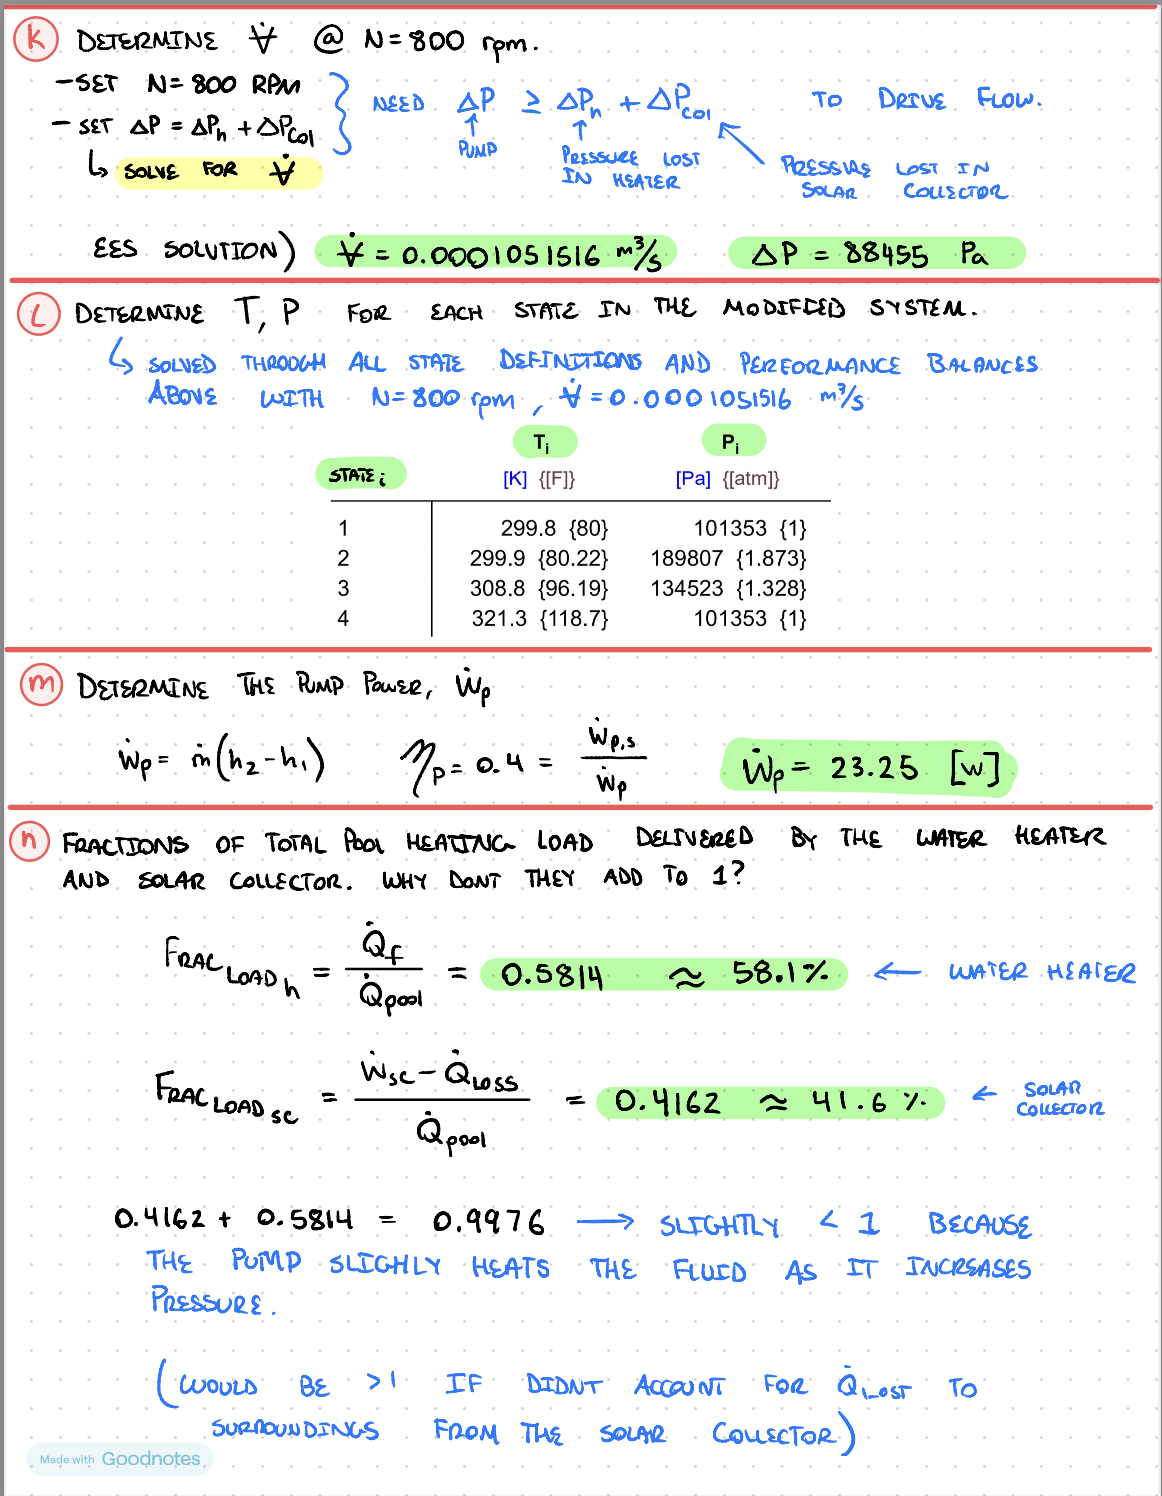 k DETERMINE V̇ @ N = 800 rpm.
- SET N = 800 RPM
- SET ΔP = ΔPh + ΔPcol
↳ SOLVE FOR V̇
NEED ΔP ≥ ΔPh + ΔPcol TO DRIVE FLOW.
PUMP
PRESSURE LOST
IN HEATER
PRESSURE LOST IN
SOLAR COLLECTOR
EES SOLUTION) V̇ = 0.0001051516 m³/s ΔP = 88455 Pa
L DETERMINE T, P FOR EACH STATE IN THE MODIFIED SYSTEM.
↳ SOLVED THROUGH ALL STATE DEFINITIONS AND PERFORMANCE BALANCES
ABOVE WITH N = 800 rpm, V̇ = 0.0001051516 m³/s
STATE i Ti Pi
[K] {[F]} [Pa] {[atm]}
1 299.8 {80} 101353 {1}
2 299.9 {80.22} 189807 {1.873}
3 308.8 {96.19} 134523 {1.328}
4 321.3 {118.7} 101353 {1}
m DETERMINE THE PUMP POWER, Ẇp
Ẇp = ṁ(h2 - h1) ηp = 0.4 = Ẇp,s / Ẇp Ẇp = 23.25 [W]
n FRACTIONS OF TOTAL POOL HEATING LOAD DELIVERED BY THE WATER HEATER
AND SOLAR COLLECTOR. WHY DONT THEY ADD TO 1?
FRAC LOAD h = Q̇f / Q̇pool = 0.5814 ≈ 58.1% ← WATER HEATER
FRAC LOAD SC = Ẇsc - Q̇LOSS / Q̇pool = 0.4162 ≈ 41.6 % ← SOLAR
COLLECTOR
0.4162 + 0.5814 = 0.9976 → SLIGHTLY < 1 BECAUSE
THE PUMP SLIGHLY HEATS THE FLUID AS IT INCREASES
PRESSURE.
(WOULD BE >1 IF DIDNT ACCOUNT FOR Q̇LOST TO
SURROUNDINGS FROM THE SOLAR COLLECTOR)
Made with Goodnotes